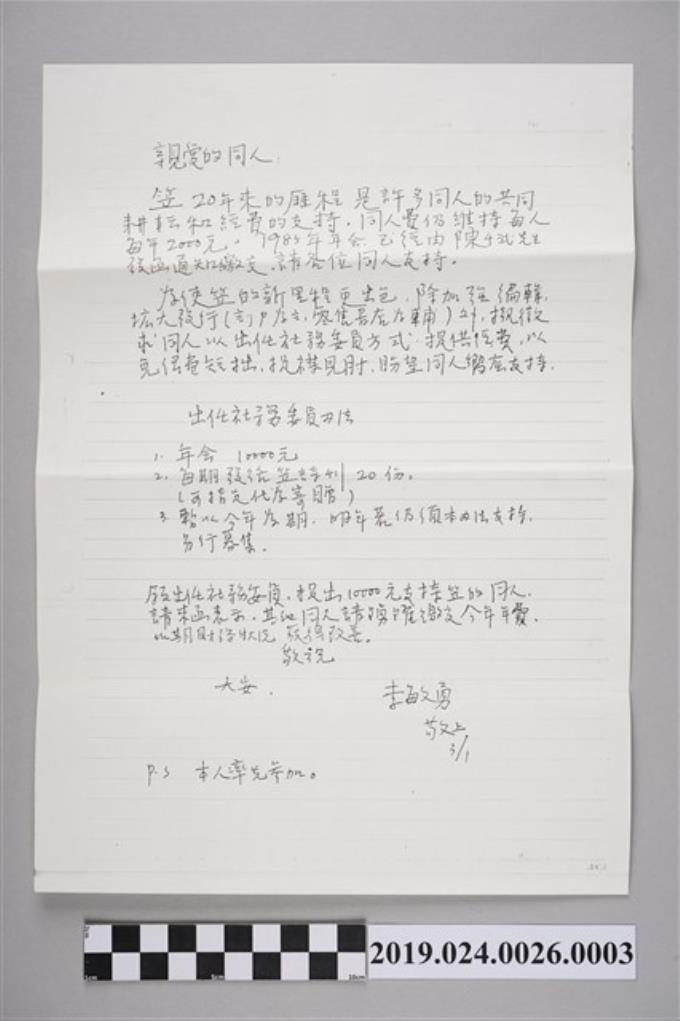 親愛的同人:
笠20年來的歷程是許多同人的共同
耕耘和經費的支持。同人費仍維持每人
每年2000元。1985年年会已經由陳千武先生
發函通知繳交,請各位同人支持。
為使笠的新里程更出色,除加強編輯、
拡大發行(訂戶為主,零售書店為輔)外,擬徵
求同人以出任社務委員方式,提供經費,以
免但書短拙,捉襟見肘,盼望同人響應支持。
出任社務委員办法
1. 年会 10000元
2. 每期發給笠詩刊20份。
(可指定代為寄贈)
3. 暫以今年為期,明年若仍須本办法支持,
另行募集。
願出任社務委員,提出10000元支持笠的同人,
請來函表示。其他同人請踴躍繳交今年年費,
以期財務狀況獲得改善。
敬祝
大安。
李敏勇
敬上
3/1
P.S 本人率先參加。
1cm
5cm
10cm
2019.024.0026.0003